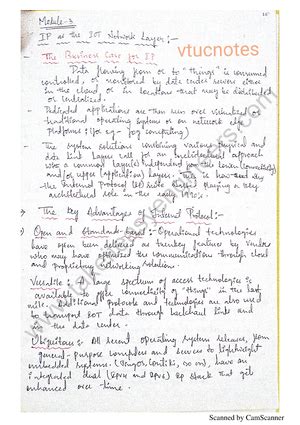 Module-3
IP as the IOT Network Layer:-
vtucnotes
The Business Case for IP
Data flowing from or to "things" is consumed
controlled, or monitored by data center servers either
in the cloud or in locations that may be distributed
or centralized.
- Dedicated applications are then run over virtualized or
traditional operating systems or on network edge
platforms (for eg- fog computing)
- The system solutions combining various physical and
data link layers call for an architectural approach
with a common layer(s) independent from the lower (connectivity)
and/or upper (application) layers. This is how and
- The Internet Protocol (IP) suite playing a key
architectural role in the early 1990s.
The Key Advantages of Internet Protocol:-
Open and Standards-based:- Operational technologies
have often been delivered as turnkey features by vendors
who may have optimized the communication through closed
and proprietary networking solution.
Versatile: A large spectrum of access technologies is
available to offer connectivity of "things" in the last
mile. Additional protocols and technologies are also used
to transport IOT data through backhaul links and
in the data center.
Ubiquitous: All recent operating system releases, from
general-purpose computers and servers to lightweight
embedded systems (TinyOS, Contiki, so on), have an
integrated dual (IPv4 and IPv6) IP stack that gets
enhanced over time.
Scanned by CamScanner